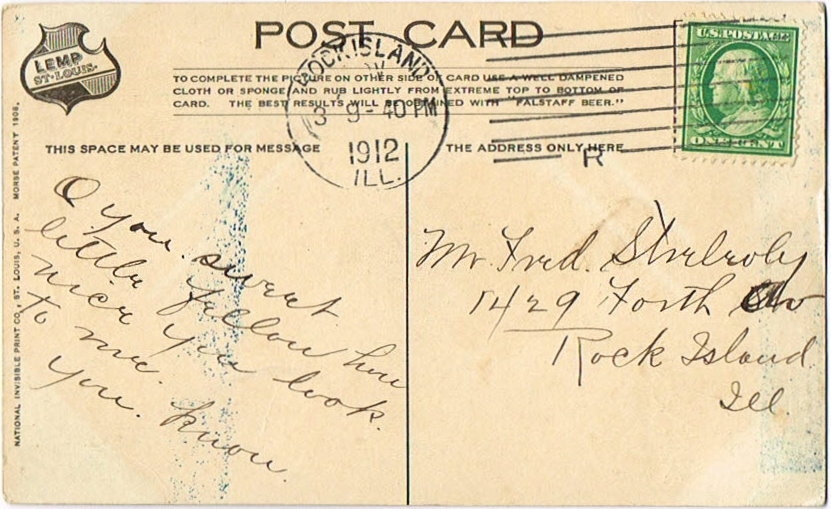 POST CARD
LEMP
ST. LOUIS.
TO COMPLETE THE PICTURE ON OTHER SIDE OF CARD USE A WELL DAMPENED
CLOTH OR SPONGE AND RUB LIGHTLY FROM EXTREME TOP TO BOTTOM OF
CARD. THE BEST RESULTS WILL BE OBTAINED WITH "FALSTAFF BEER."
ROCK ISLAND
3 9-40 PM
1912
ILL.
U.S. POSTAGE
ONE CENT
R
THIS SPACE MAY BE USED FOR MESSAGE
THE ADDRESS ONLY HERE
NATIONAL INVISIBLE PRINT CO., ST. LOUIS, U. S. A. MORSE PATENT 1908.
O you. sweet
little fellow how
nice you look.
to me.
you. know.
Mr. Fred.
1429 Forth
Rock Island
Ill.